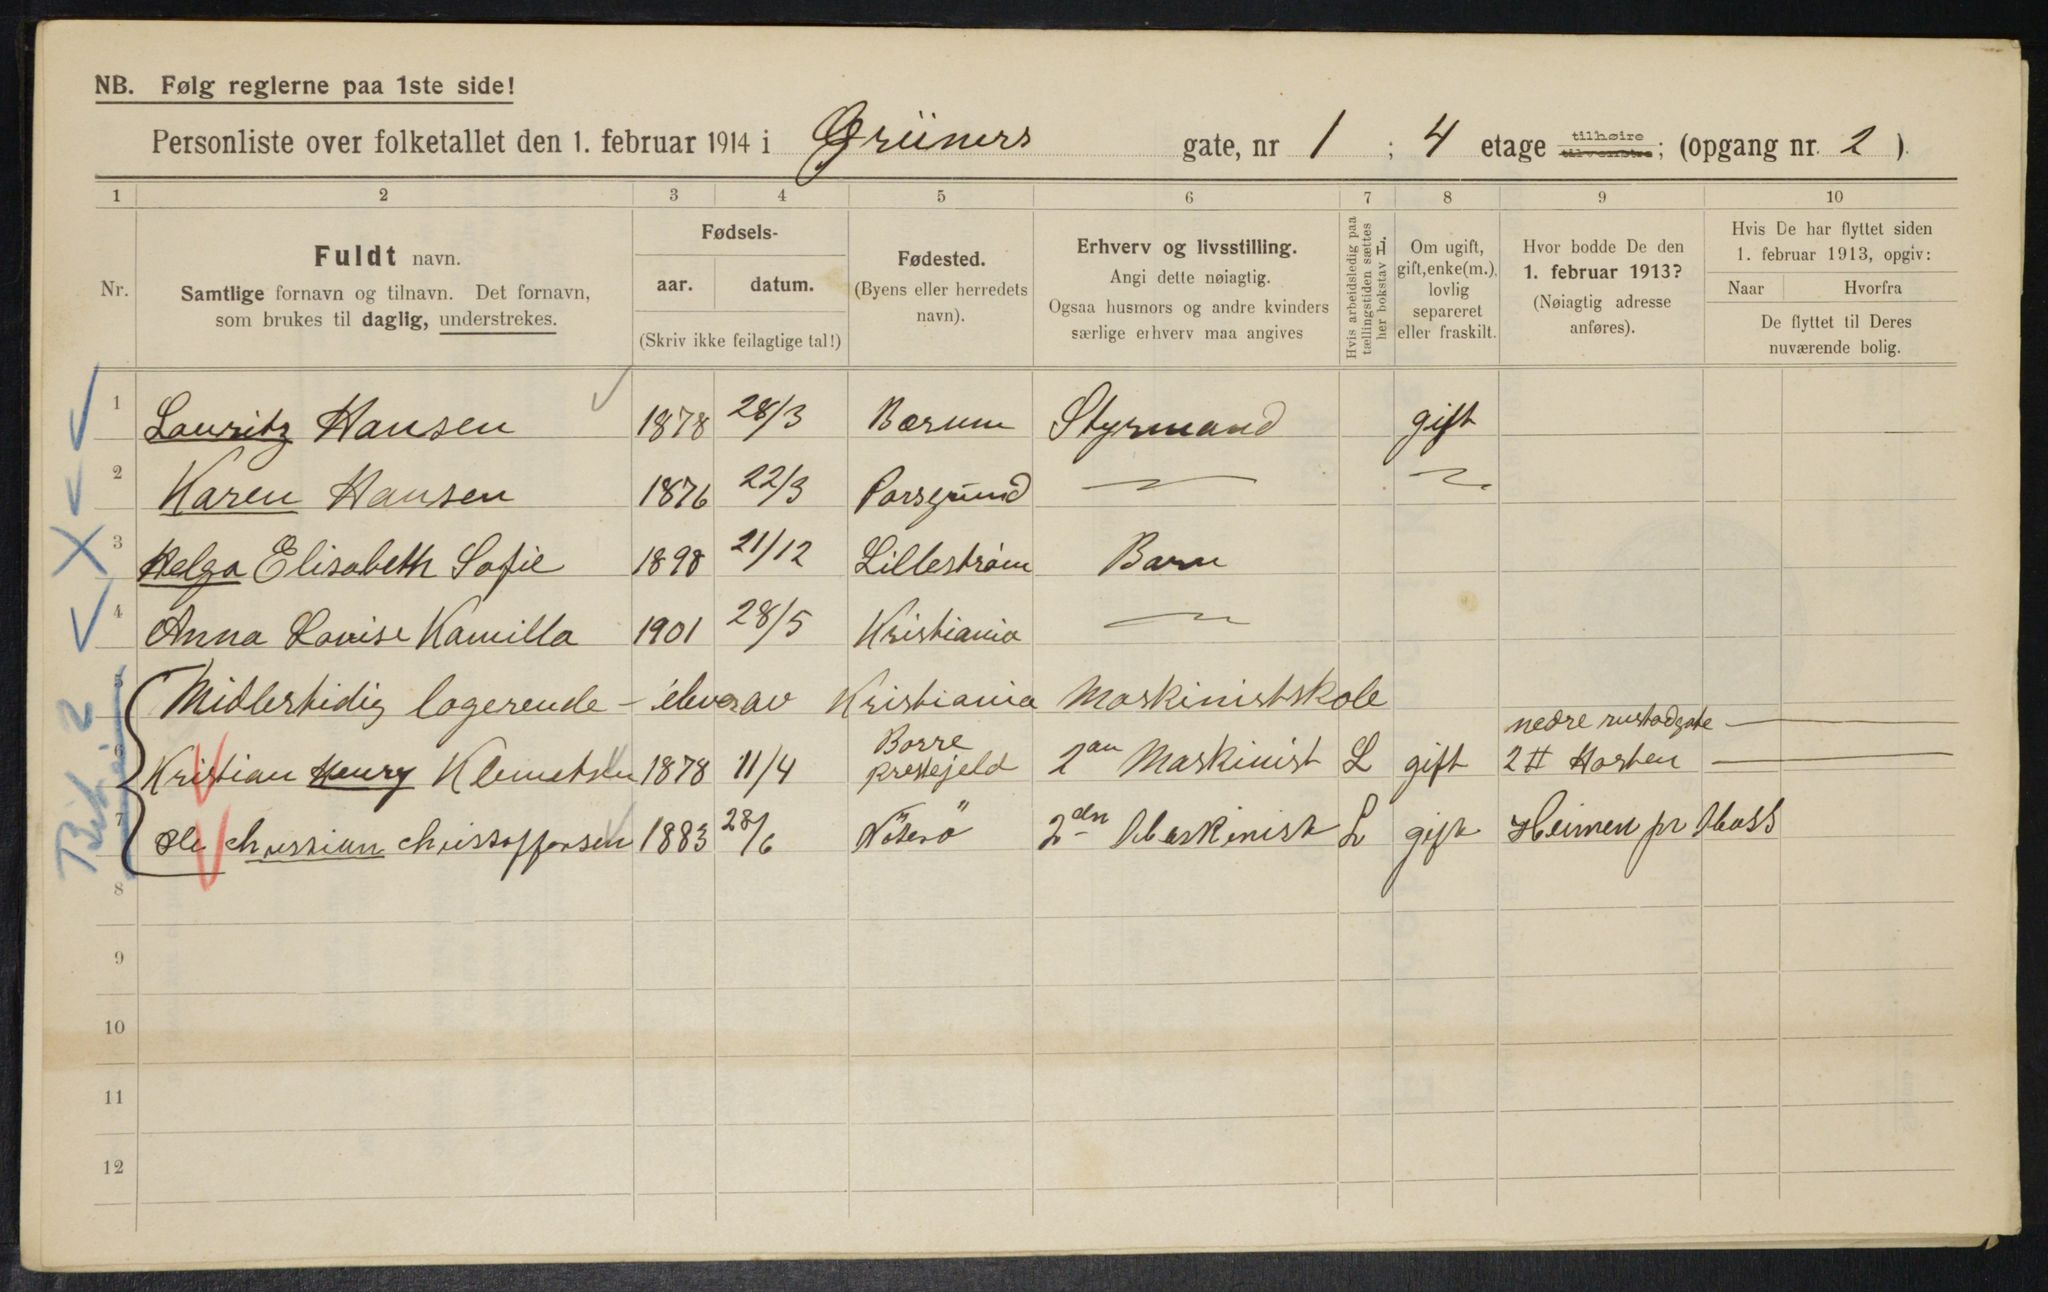 NB. Følg reglerne paa 1ste side!
Personliste over folketallet den 1. februar 1914 i Grüners gate, nr 1 ; 4 etage tilhøire tilvenstre; (opgang nr. 2 ).
1 2 3 4 5 6 7 8 9 10
Nr.
Fuldt navn.
Samtlige fornavn og tilnavn. Det fornavn,
som brukes til daglig, understrekes.
Fødsels-
aar. datum.
(Skriv ikke feilagtige tal!)
Fødested.
(Byens eller herredets
navn).
Erhverv og livsstilling.
Angi dette nøiagtig.
Ogsaa husmors og andre kvinders
særlige erhverv maa angives
Hvis arbeidsledig paa
tællingstiden sættes
her bokstav L.
Om ugift,
gift, enke(m.),
lovlig
separeret
eller fraskilt.
Hvor bodde De den
1. februar 1913?
(Nøiagtig adresse
anføres).
Hvis De har flyttet siden
1. februar 1913, opgiv:
Naar Hvorfra
De flyttet til Deres
nuværende bolig.
1 Lauritz Hansen 1878 28/3 Bærum Styrmand gift
2 Karen Hansen 1876 22/3 Porsgrund
3 Helga Elisabeth Sofie 1898 21/12 Lillestrøm Barn
4 Anna Lovise Kamilla 1901 28/5 Kristiania
5 Midlertidig logerende - elever av Kristiania Maskinistskole
6 Kristian Henry Klemetsen 1878 11/4 Borre Prestejeld 2an Maskinist L gift nedre 2 Horten
7 Ole Christian Christoffersen 1883 28/6 Nøterö 2den Maskinist L gift Heimen pr Moss
8
9
10
11
12